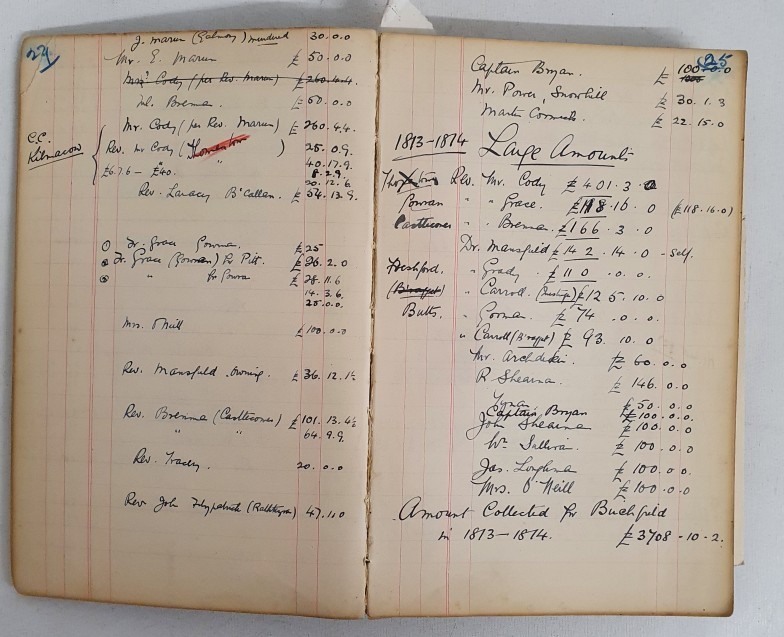 24
J. Marum (Galmoy) murdered 30.0.0
Mr. E. Marum £ 50.0.0
Mrs? Cody (per Rev. Marum) £260.4.4.
Wl. Brennan. £50.0.0
Mr. Cody (per Rev. Marum) £ 260.4.4.
C.C.
Kilmacow
Rev. Mr Cody ( ) 25.0.9.
" 40.17.9.
£6.7.6 - £40. 8.2.9.
20.12.6.
Rev. Laracy B'Callen. £ 54.13.9.
① Fr. Grace Gowran. £25
② Fr. Grace (Gowran) R Pitt. £26.2.0
③ " for Gowran £28.11.6
14.3.6.
25.0.0.
Mrs. O'Neill £100.0.0
Rev. Mansfield owning. £36.12.1½
Rev. Brennan (Castlecomer) £101.13.4½
" " 64.9.9.
Rev. Tracey. 20.0.0
Rev John Fitzpatrick (Rathdowney) 47.11.0
25
Captain Bryan. £ 100.0.0
Mr. Power, Snowhill £ 30.1.3
Martin Cormack £ 22.15.0
1813-1814 Large Amounts
Rev. Mr. Cody £401.3.0
Gowran " " Grace. £118.16.0 (£118.16.0)
Castlecomer " " Brennan £166.3.0
Dr. Mansfield £142.14.0 - self.
Freshford. " Grady. £110.0.0.
(B'ragget) " Carroll. £125.10.0
Butts. " Gorman. £74.0.0.
" Carroll (B'ragget) £ 93.10.0
Mr. Archdekin. £ 60.0.0
R. Shearman. £ 146.0.0
Tynan £50.0.0
Captain Bryan £100.0.0
John Shearman £100.0.0
Wm Sullivan. £ 100.0.0
Jas. Loughman £ 100.0.0.
Mrs. O'Neill £100.0.0
Amount Collected for Burchfield
in 1813-1814. £3708.10.2.